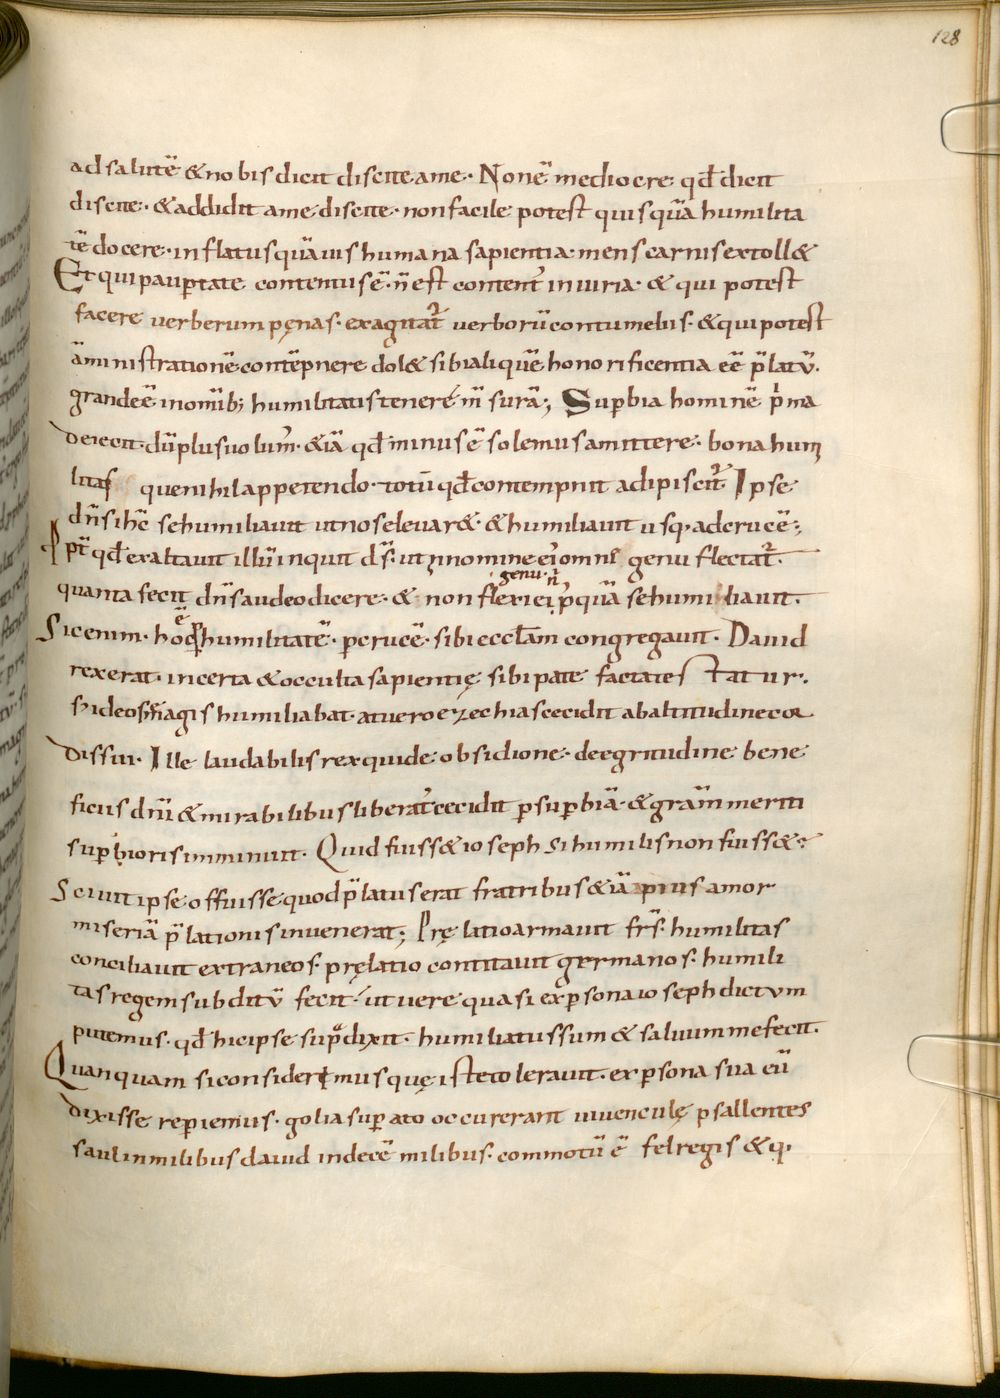 128
ad salutē & nobis dicit discite a me. Non ē mediocre qđ dicit
discite. & addidit a me discite. non facile potest quisquā humilita
tē docere. inflatus quāuis humana sapientia. mens carnis extoll&
Et qui paup̄tate contentus ē. n̄ est content᷒ iniuria. & qui potest
facere verberum pęnas. exagitat᷒ verborū contumeliis. & qui potest
āministrationē contēpnere dol& sibi aliquē honorificentia eē p̄latū.
grande ē in omīb; humilitatis tenere m̄surā; Sup̄bia hominē p̄ma
deiecit. dū plus uolum᷒. & iā qđ minus ē solemus amittere. bona humi
litas que nihil appetendo. totū qđ contempnit adipiscit᷒ Ipse
dn̄s ih̄c se humiliauit ut nos eleuar&. & humiliauit usq. ad crucē;
Ppt̄ qđ exaltauit illū inquit d̄s. ut in nomine ei᷒ omne genu flectat᷒.
genu. n̄
quanta fecit dn̄s audeo dicere. & non flexi ei p᷒quā se humiliauit.
Sic enim. hoc ē qđ p humilitatē. p crucē. sibi eccłam congregauit. Dauid
rexerat. incerta & occulta sapientię sibi patefacta testatur.
s; ideo se magis humiliabat. at uero ezechias cecidit ab altitudine cor
dis sui. Ille laudabilis rex qui de obsidione. de egritudine bene
ficiis dn̄i & mirabilibus liberat᷒ cecidit p sup̄biā. & gr̄am meriti
sup̄bioris imminuit. Quid fuiss& ioseph si humilis non fuiss&?
Sciuit ipse offuisse quod p̄latus erat fratribus & iā pius amor
miseriā p̄lationis inuenerat; Prę latio armauit fr̄s. humilitas
conciliauit extraneos. pręlatio concitauit germanos. humili
tas regem subditū fecit. ut uere quasi ex p̄sona ioseph dictum
putemus. qđ hic ipse sup̄dixit. humiliatus sum & saluum me fecit.
Quanquam si consideremus quę iste tolerauit. ex p̄sona sua eū
dixisse rep̄iemus. golia sup̄ato occurerant iuuenculę psallentes
saul in milibus dauid in decē milibus. commotū ē fel regis & q.